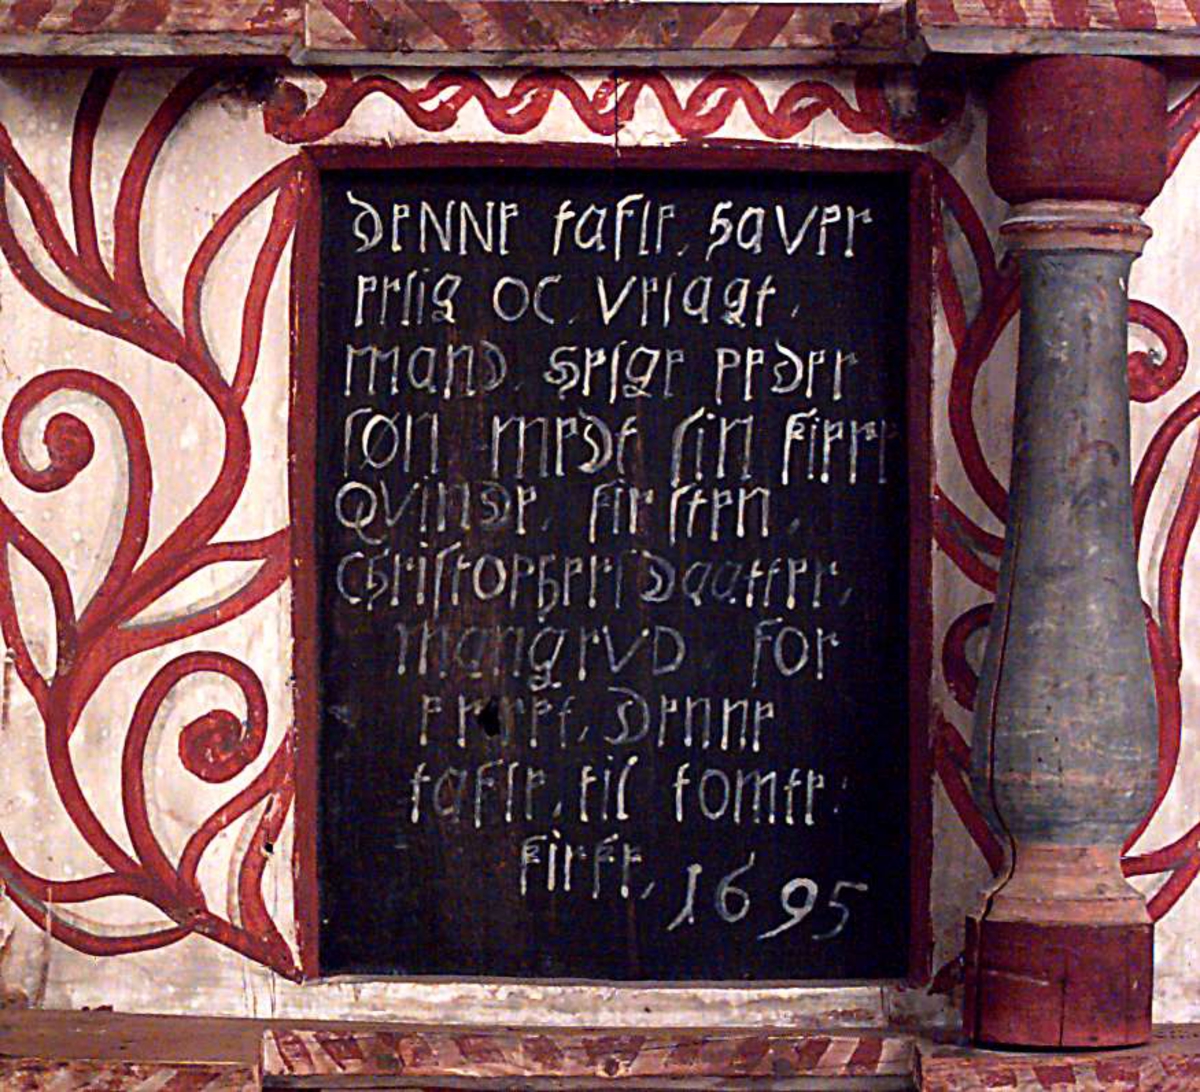 DENNE tafle, haver
erlig oc velagt,
mand, helge peder
søn medt sin kiere
Qvinde, kirsten,
Christophers daatter,
mangrud for
eeret, Denne
tafle, til tomte
kirke, 1695